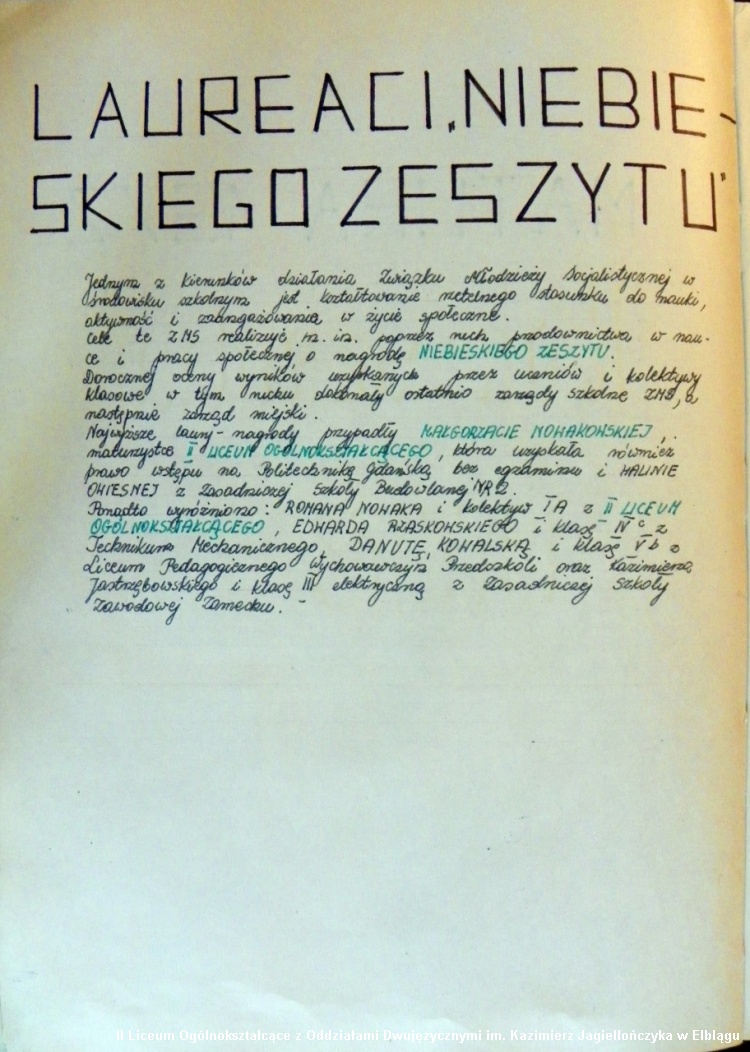 LAUREACI „NIEBIE-
SKIEGO ZESZYTU"
Jednym z kierunków działania Związku Młodzieży Socjalistycznej w
środowisku szkolnym jest kształtowanie rzetelnego stosunku do nauki,
aktywność i zaangażowania w życie społeczne.
Cele te ZMS realizuje m.in. poprzez ruch przodownictwa w nau-
ce i pracy społecznej o nagrodę NIEBIESKIEGO ZESZYTU.
Dorocznej oceny wyników uzyskanych przez uczniów i kolektywy
klasowe w tym ruchu dokonały ostatnio zarządy szkolne ZMS, a
następnie zarząd miejski.
Najwyższe laury-nagrody przypadły MAŁGORZACIE NOWAKOWSKIEJ,
maturzystce II LICEUM OGÓLNOKSZTAŁCĄCEGO, która uzyskała również
prawo wstępu na Politechnikę Gdańską bez egzaminu i HALINIE
OWIESNEJ z Zasadniczej Szkoły Budowlanej NR 2.
Ponadto wyróżniono: ROMANA NOWAKA i kolektyw IA z II LICEUM
OGÓLNOKSZTAŁCĄCEGO, EDWARDA RZASKOWSKIEGO i klasę IV c z
Technikum Mechanicznego, DANUTĘ KOWALSKĄ i klasę V b z
Liceum Pedagogicznego Wychowawczyń Przedszkoli oraz Kazimierza
Jastrzębowskiego i klasę III elektryczną z Zasadniczej Szkoły
Zawodowej Zamechu.-
II Liceum Ogólnokształcące z Oddziałami Dwujęzycznymi im. Kazimierz Jagiellończyka w Elblągu